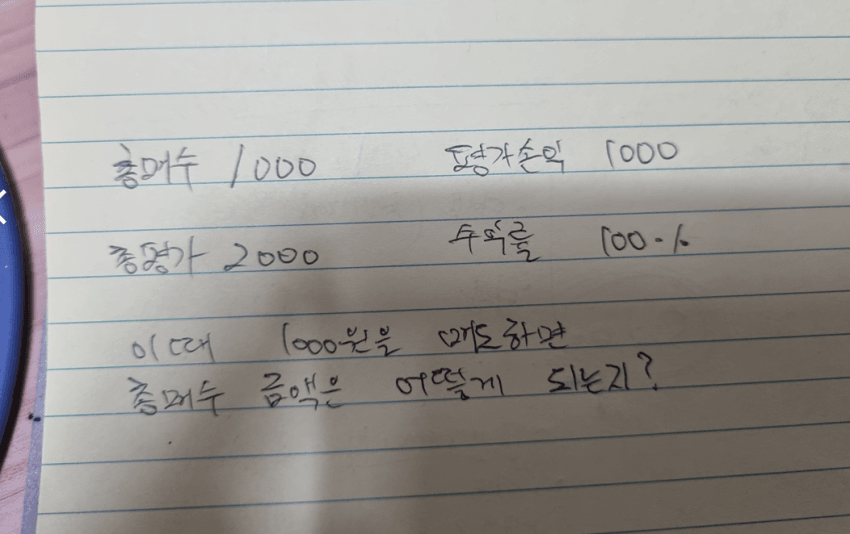 총매수 1000 평가손익 1000
총평가 2000 수익률 100%
이때 1000원을 매도하면
총매수 금액은 어떻게 되는지?